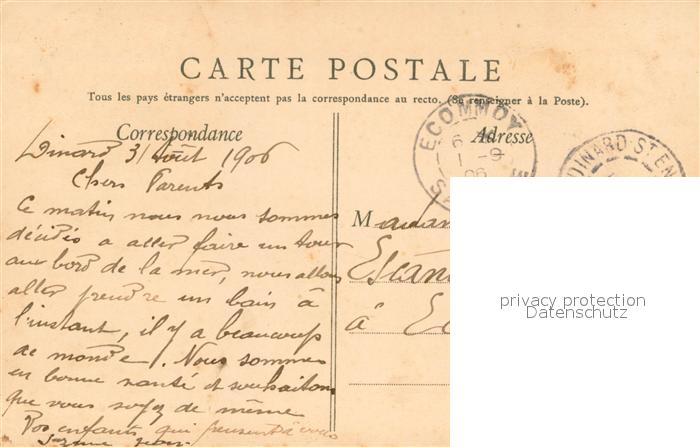 CARTE POSTALE
Tous les pays étrangers n'acceptent pas la correspondance au recto. (Se renseigner à la Poste).
Correspondance
Dinard 31 Août 1906
Chers Parents
Ce matin nous nous sommes
décidés a aller faire un tour
aux bord de la mer, nous allons
aller prendre un bain à
l'instant, il y a beaucoup
de monde. Nous sommes
en bonne santé et souhaitons
que vous soyez de même
Vos enfants qui pensent à vous
Adresse
ECOMMOY
6
1 -9
06
DINARD-ST EN
Madam
à Ec
privacy protection
Datenschutz